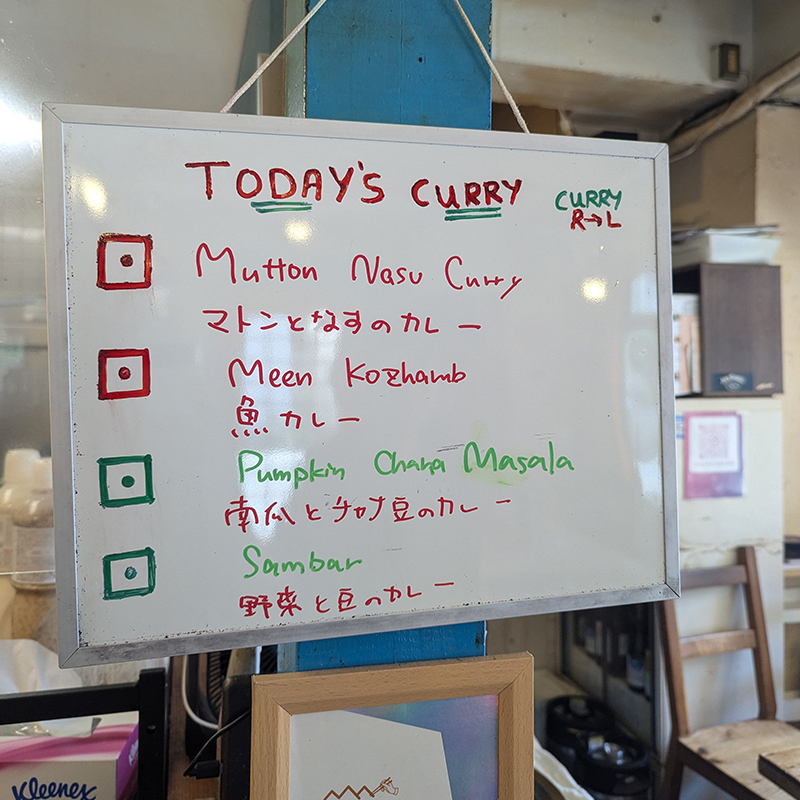 TODAY'S CURRY
CURRY
R→L
Mutton Nasu Curry
マトンとなすのカレー
Meen Kozhamb
魚カレー
Pumpkin Chana Masala
南瓜とチャナ豆のカレー
Sambar
野菜と豆のカレー
Kleenex